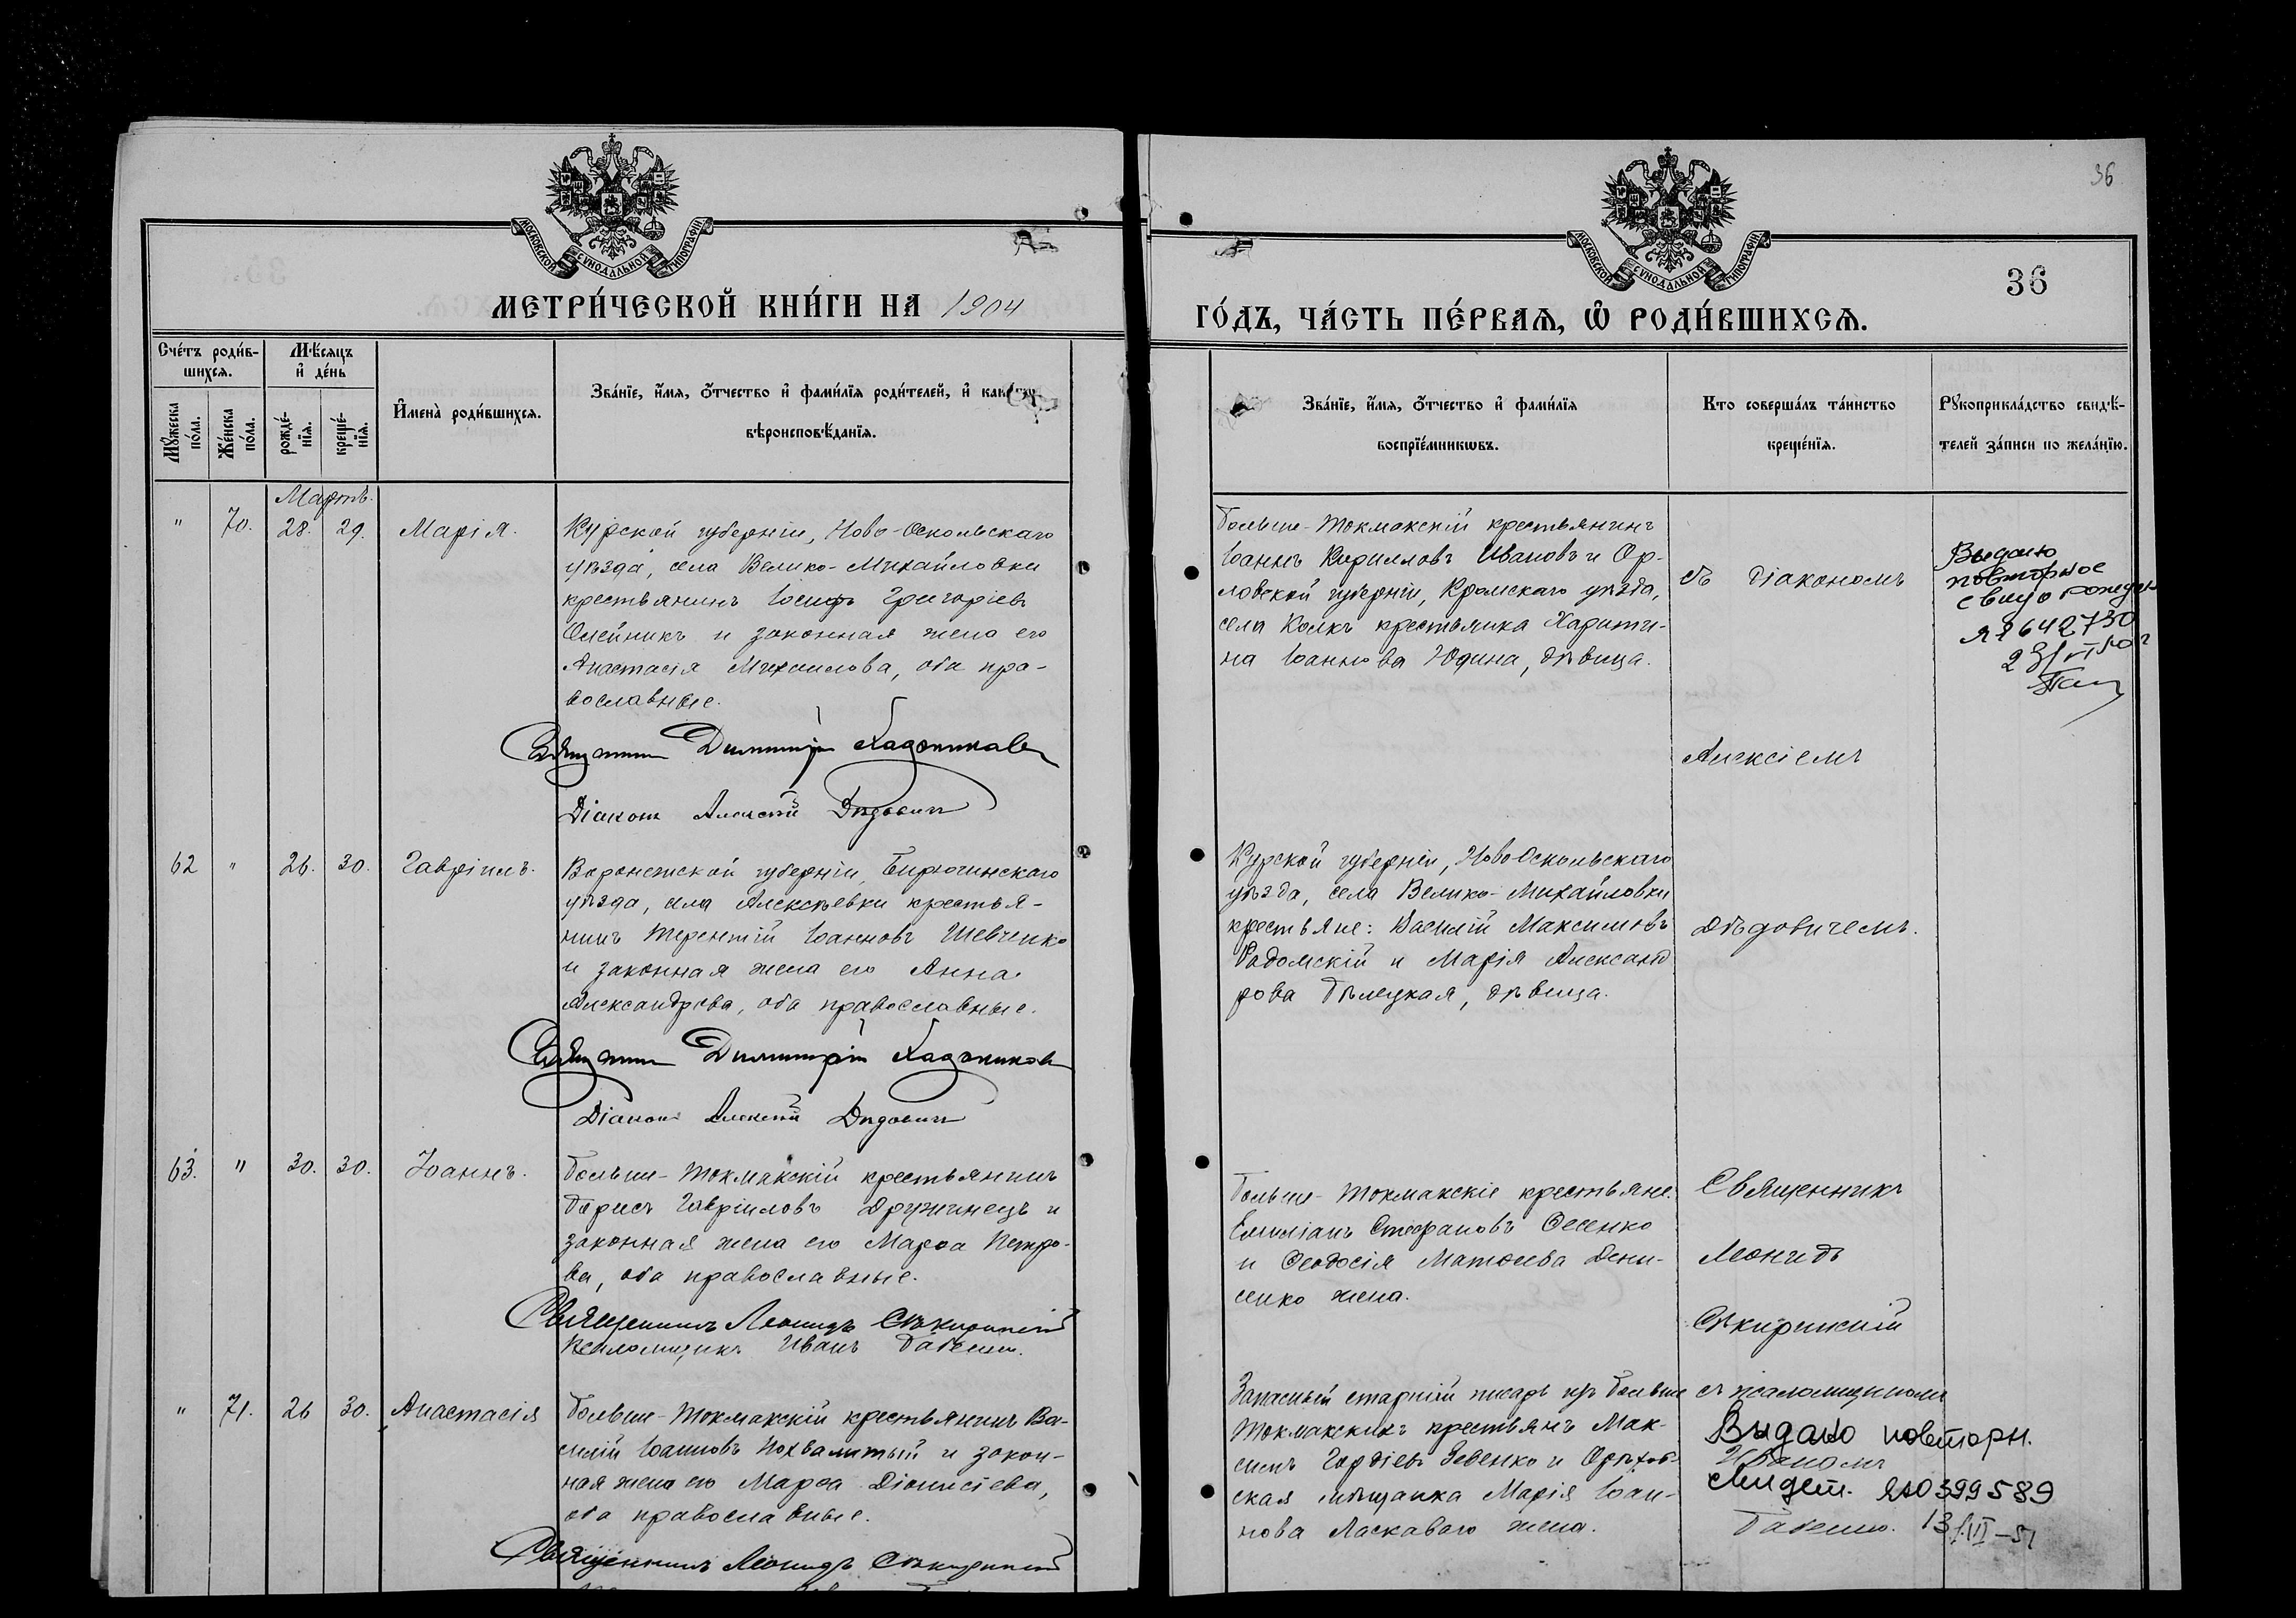 36
МОСКОВСКОЙ СѴНОДАЛЬНОЙ ТИПОГРАФІИ
МЕТРИ́ЧЕСКОЙ КНИ́ГИ НА 1904
Сче́тъ роди́в-
шихсѧ.
Мꙋжеска
по́ла.
Же́нска
по́ла.
Мѣ́сѧцъ
и҆ де́нь
рожде́-
нїѧ.
креще́-
нїѧ.
И҆мена̀ роди́вшихсѧ.
Зва́нїе, и҆́мѧ, ѻ҆́тчество и҆ фами́лїѧ роди́телей, и҆
вѣроисповѣ́данїѧ.
Мартъ.
" 70. 28. 29. Марія.
Курской губерніи, Ново-Оскольскаго
уѣзда, села Велико-Михайловки
крестьянинъ Іосифъ Григоріевъ
Олейникъ и законная жена его
Анастасія Михаилова, оба пра-
вославные.
Священникъ Димитрій
Діаконъ Алексій Дѣдовичъ
62 " 26. 30. Гавріилъ.
Воронежской губерніи, Бирючинскаго
уѣзда, села Алексѣевки крестья-
нинъ Терентій Іоанновъ Шевченко
и законная жена его Анна
Александрова, оба православные.
Священникъ Димитрій
Діаконъ Алексій Дѣдовичъ
63. " 30. 30. Іоаннъ.
Больше-Токмакскій крестьянинъ
Борисъ Гавріиловъ Дружинецъ и
законная жена его Марѳа Петро-
ва, оба православные.
Священникъ Леонидъ Сѣкирскій
Псаломщикъ Иванъ
" 71. 26 30. Анастасія
Больше-Токмакскій крестьянинъ Ва-
силій Іоанновъ Похвалитый и закон-
ная жена его Марѳа Діонисіева,
оба православные.
Священникъ Леонидъ
36
МОСКОВСКОЙ СѴНОДАЛЬНОЙ ТИПОГРАФІИ
ГО́ДЪ, ЧА́СТЬ ПЕ́РВАѦ, Ѽ РОДИ́ВШИХСѦ.
Зва́нїе, и҆́мѧ, ѻ҆́тчество и҆ фами́лїѧ
воспрїе́мникѡвъ.
Кто соверша́лъ та́инство
креще́нїѧ.
Рꙋкоприкла́дство свидѣ́-
телей за́писи по жела́нїю.
Больше-Токмакскій крестьянинъ
Іоаннъ Кирилловъ Ивановъ и Ор-
ловской губерніи, Кромскаго уѣзда,
села Колкъ крестьянка Харити-
на Іоаннова Юдина, дѣвица.
съ діакономъ
Алексіемъ
Дѣдовичемъ.
Выдано
повторное
642730
Курской губерніи, Ново Оскольскаго
уѣзда, села Велико-Михайловки
крестьяне: Василій Максимовъ
Радомскій и Марія Александ
рова Бѣлецкая, дѣвица.
Больше-Токмакскіе крестьяне
Емиліанъ Стефановъ Ѳесенко
и Ѳеодосія Матѳеева Дени-
сенко жена.
Священникъ
Леонидъ
Сѣкирскій
Запасный старшій писарь изъ Больше
Токмакскихъ крестьянъ Мак-
симъ Гордіевъ Зевенко и Орѣхов-
ская мѣщанка Марія Іоан-
нова Ласкаваго жена.
съ псаломщикомъ
Выдано повторн.
Иваномъ
свидет. ЯЮ 399589
13/VII-51